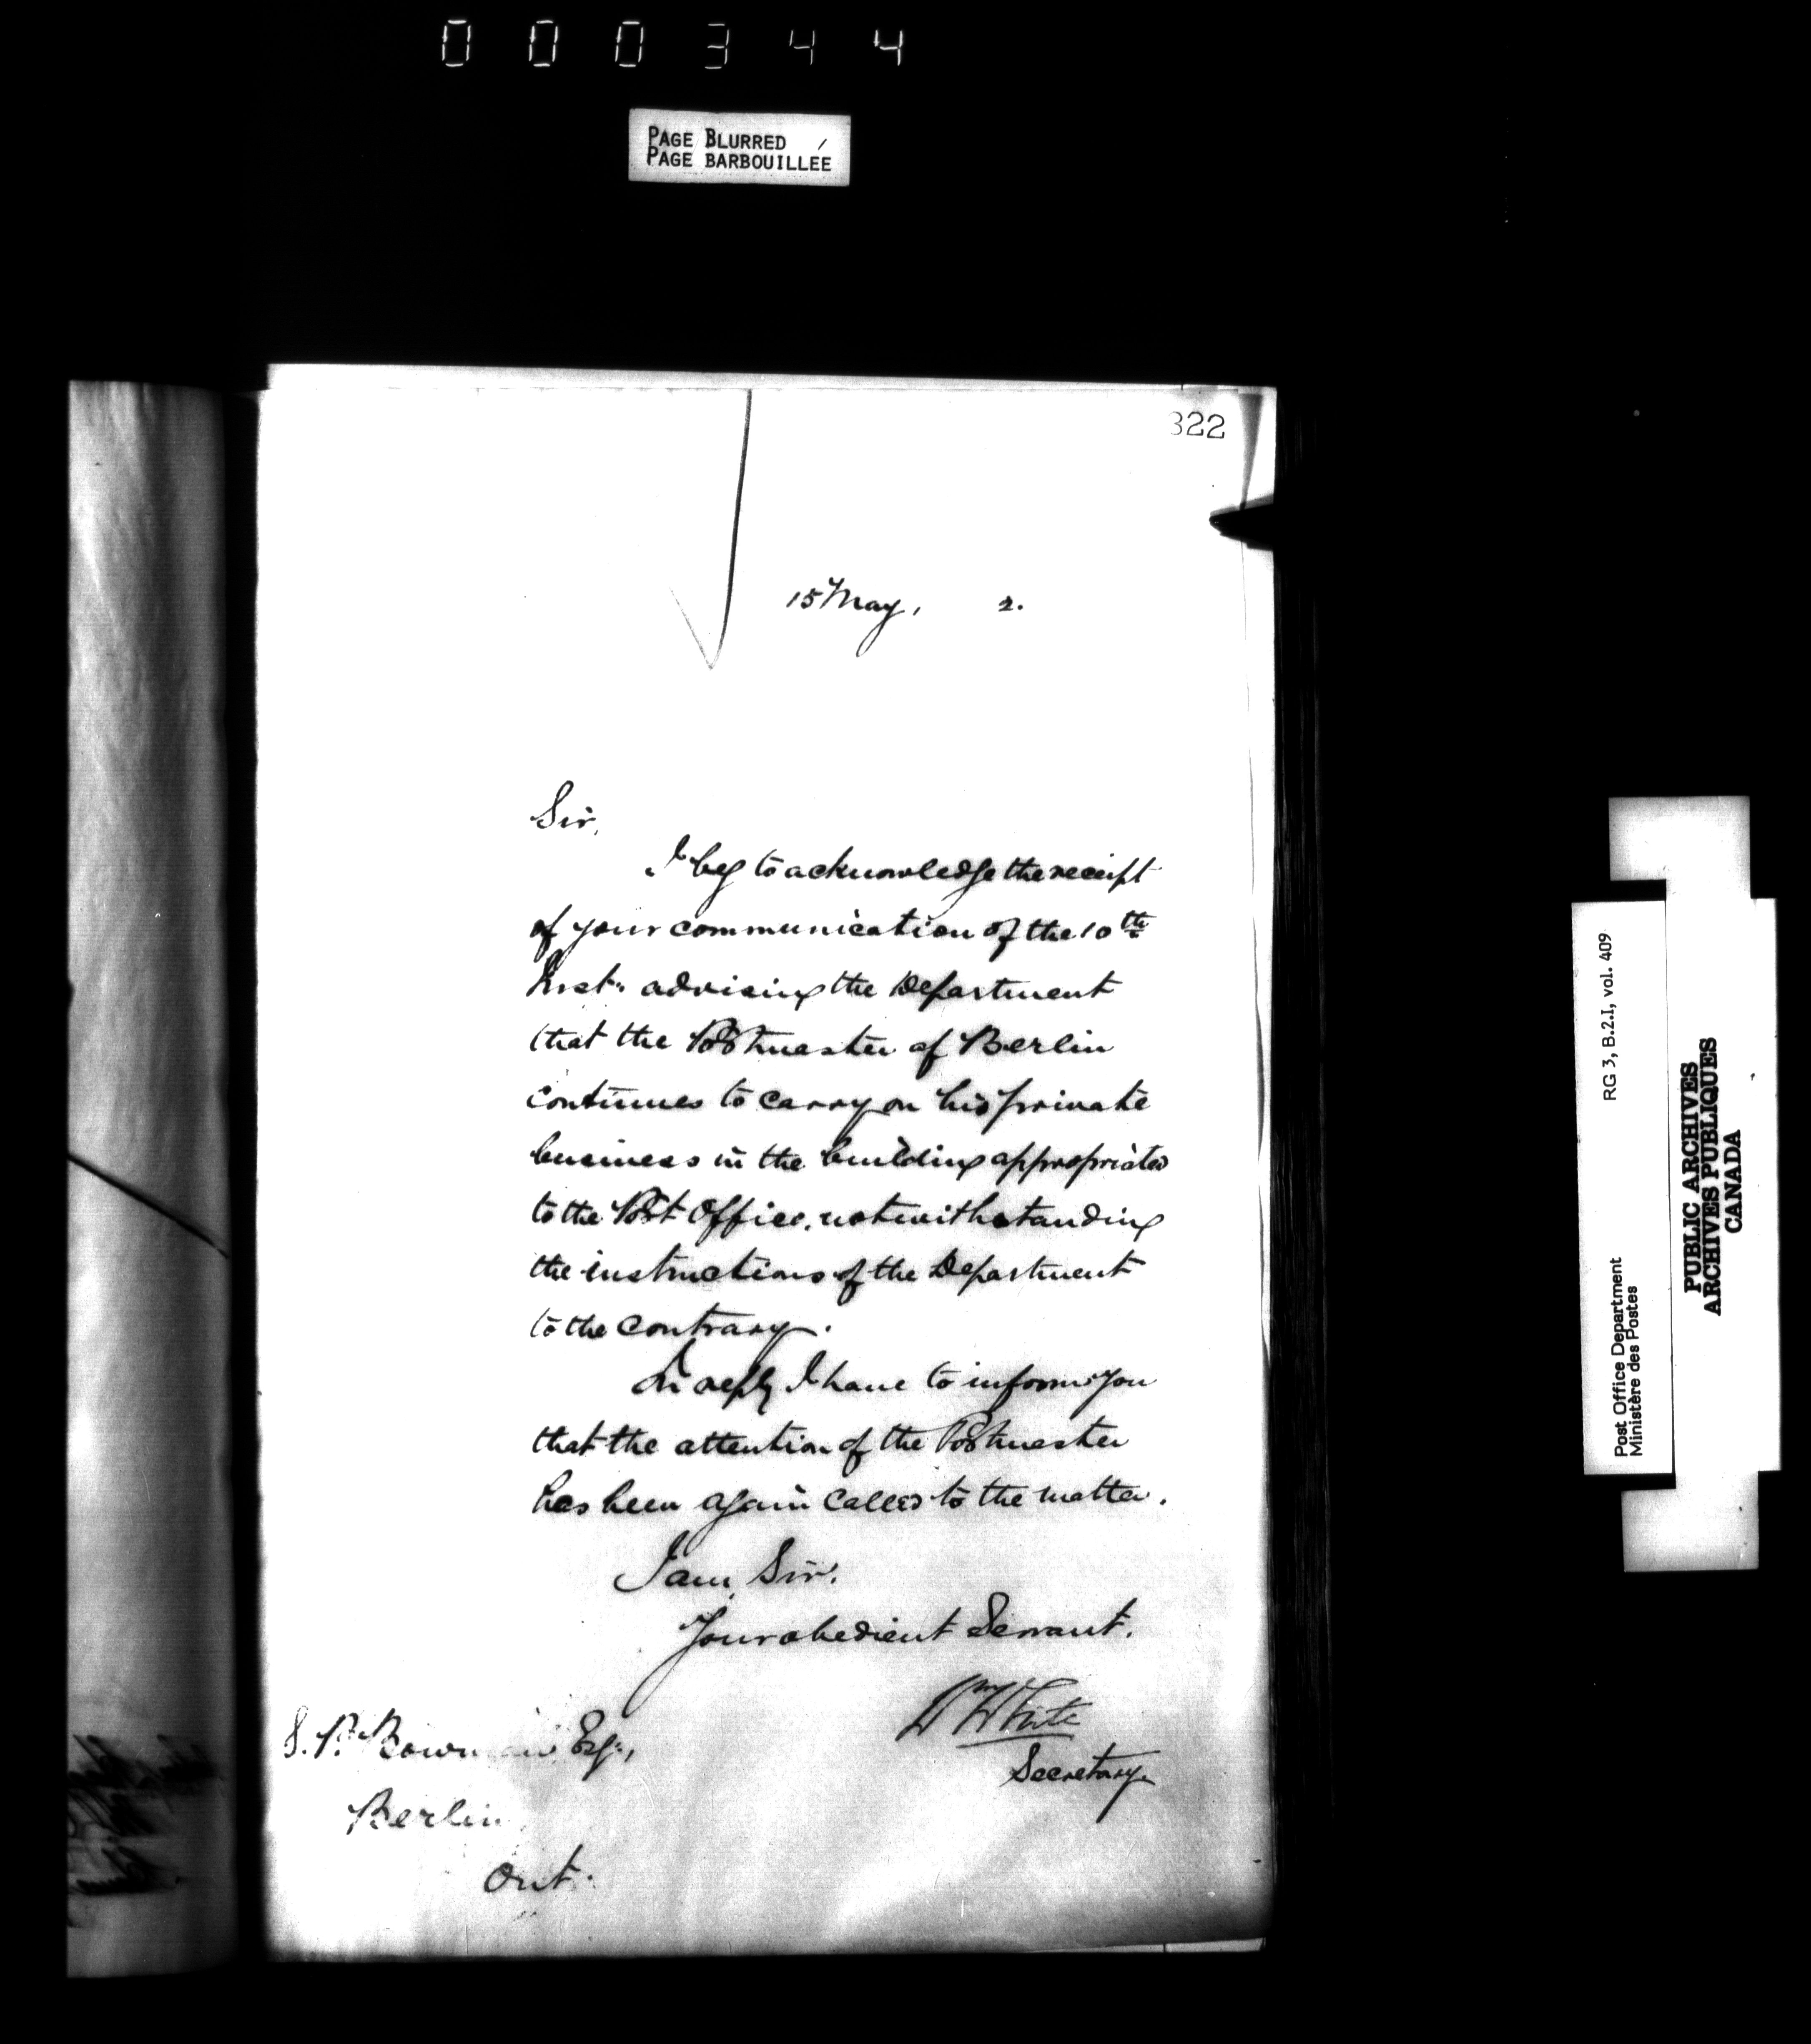 000344
PAGE BLURRED
PAGE BARBOUILLÉE
322
15 May, 2.
Sir,
I beg to acknowledge the receipt
of your communication of the 10th
Inst. advising the Department
that the Postmaster of Berlin
continues to carry on his private
business in the building appropriated
to the Post Office, notwithstanding
the instructions of the Department
to the contrary.
In reply I have to inform you
that the attention of the Postmaster
has been again called to the matter.
I am, Sir,
Your obedient Servant,
Wm White
Secretary
Esq.,
Berlin
Ont.
RG 3, B.2.I, vol. 409
Post Office Department
Ministère des Postes
PUBLIC ARCHIVES
ARCHIVES PUBLIQUES
CANADA